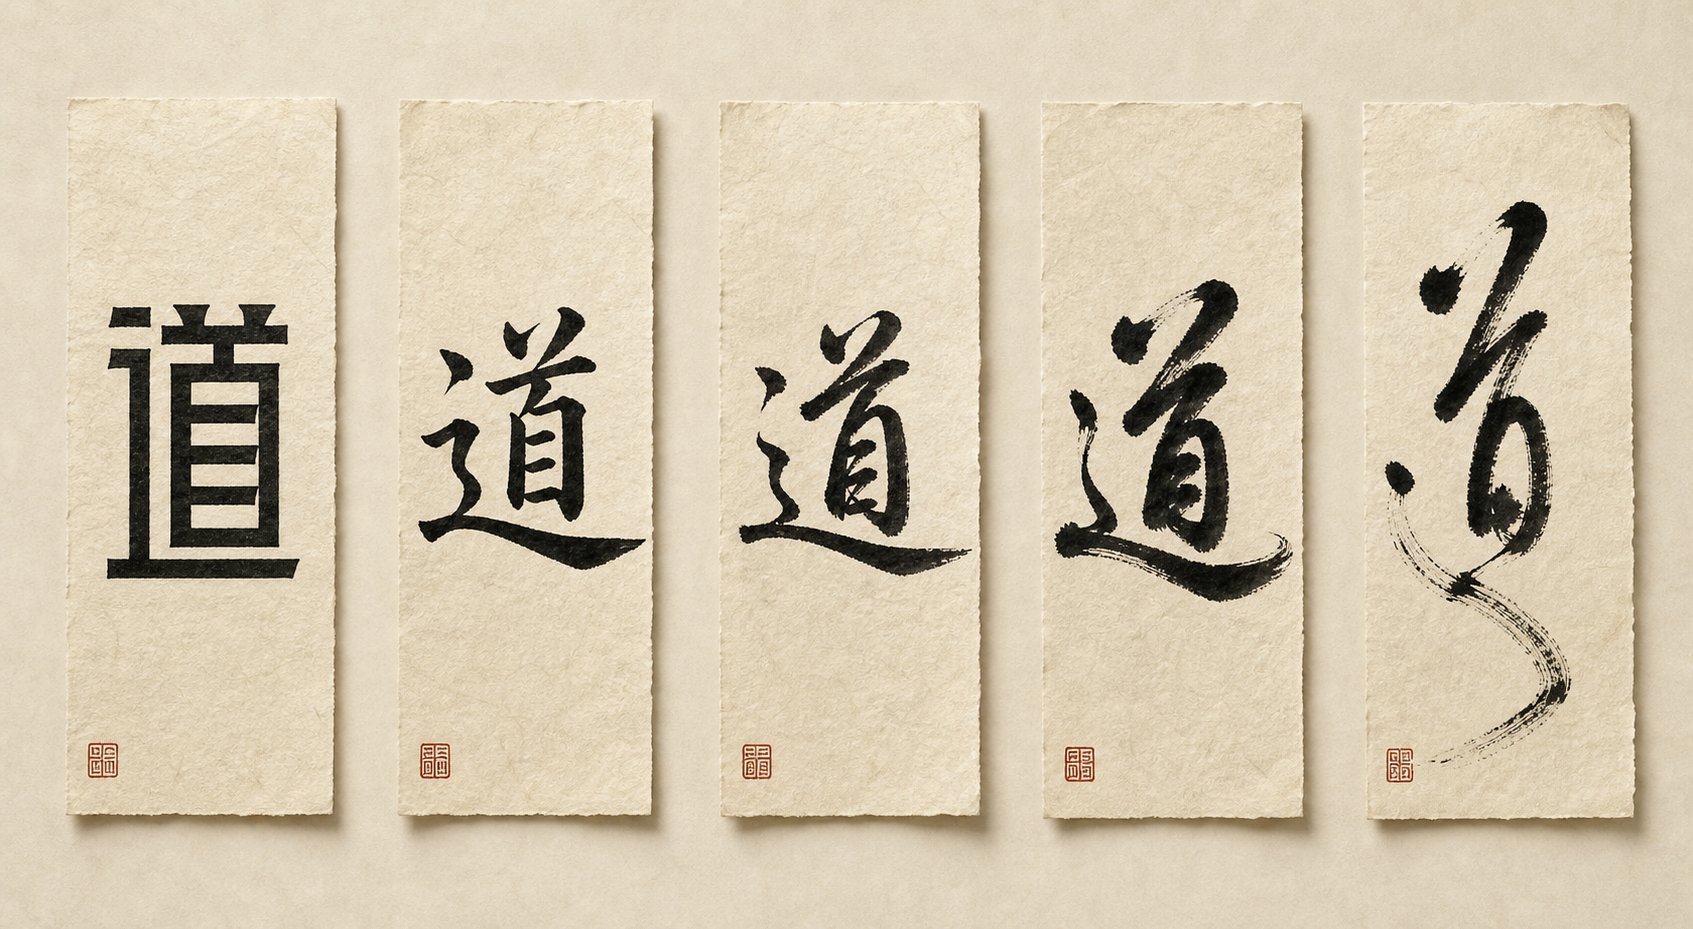 道
道
道
道
道